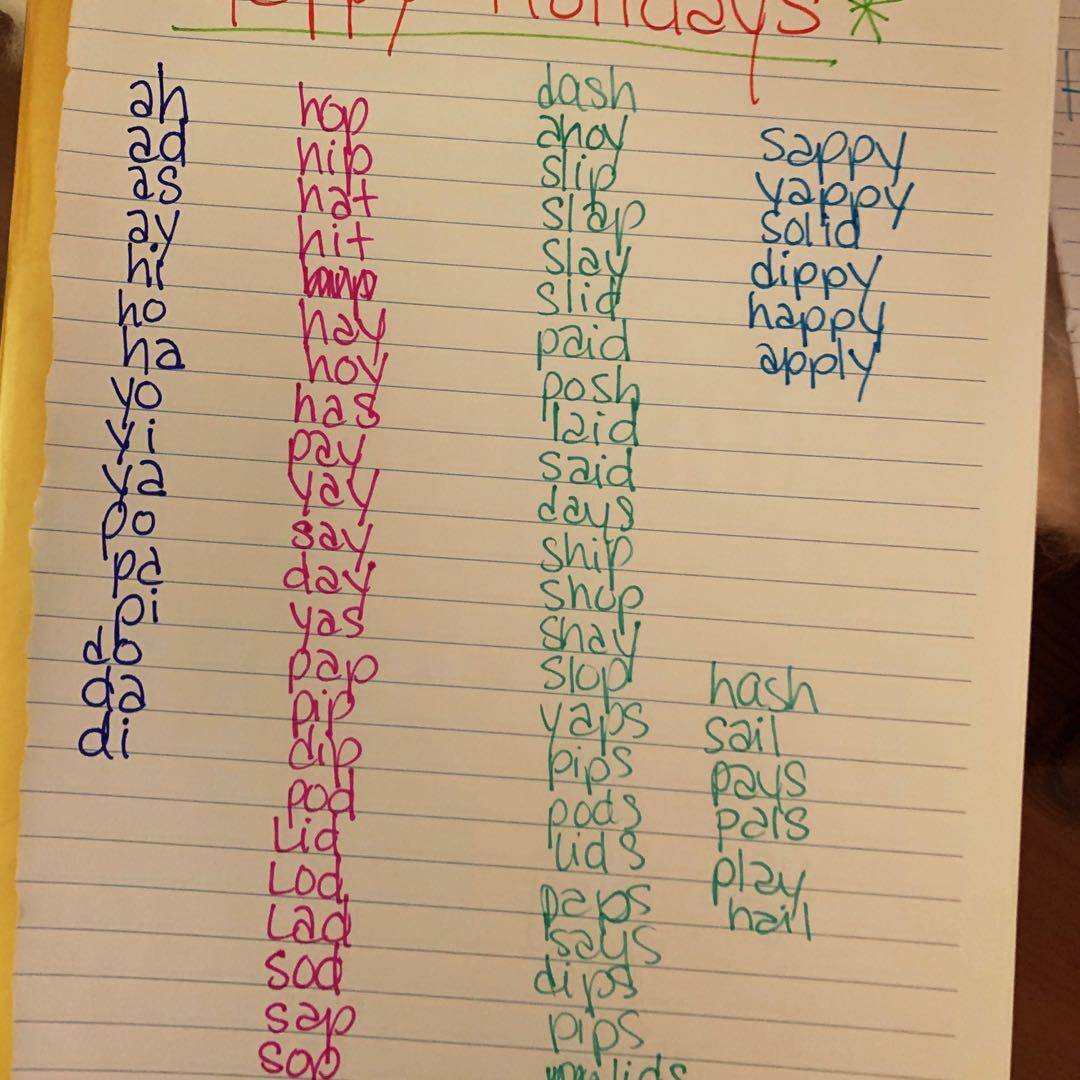 Holidays *
ah
ad
as
ay
hi
ho
ha
yo
yi
ya
po
pa
pi
do
da
di
hop
hip
hat
hit
hay
hoy
has
pay
yay
say
day
yas
pap
pip
dip
pod
Lid
Lod
Lad
sod
sap
sop
dash
ahoy
slip
slap
slay
slid
paid
posh
laid
said
days
ship
shop
shay
slop
yaps
pips
pods
lids
paps
says
dips
pips
lids
sappy
yappy
solid
dippy
happy
apply
hash
sail
pays
pals
play
hail